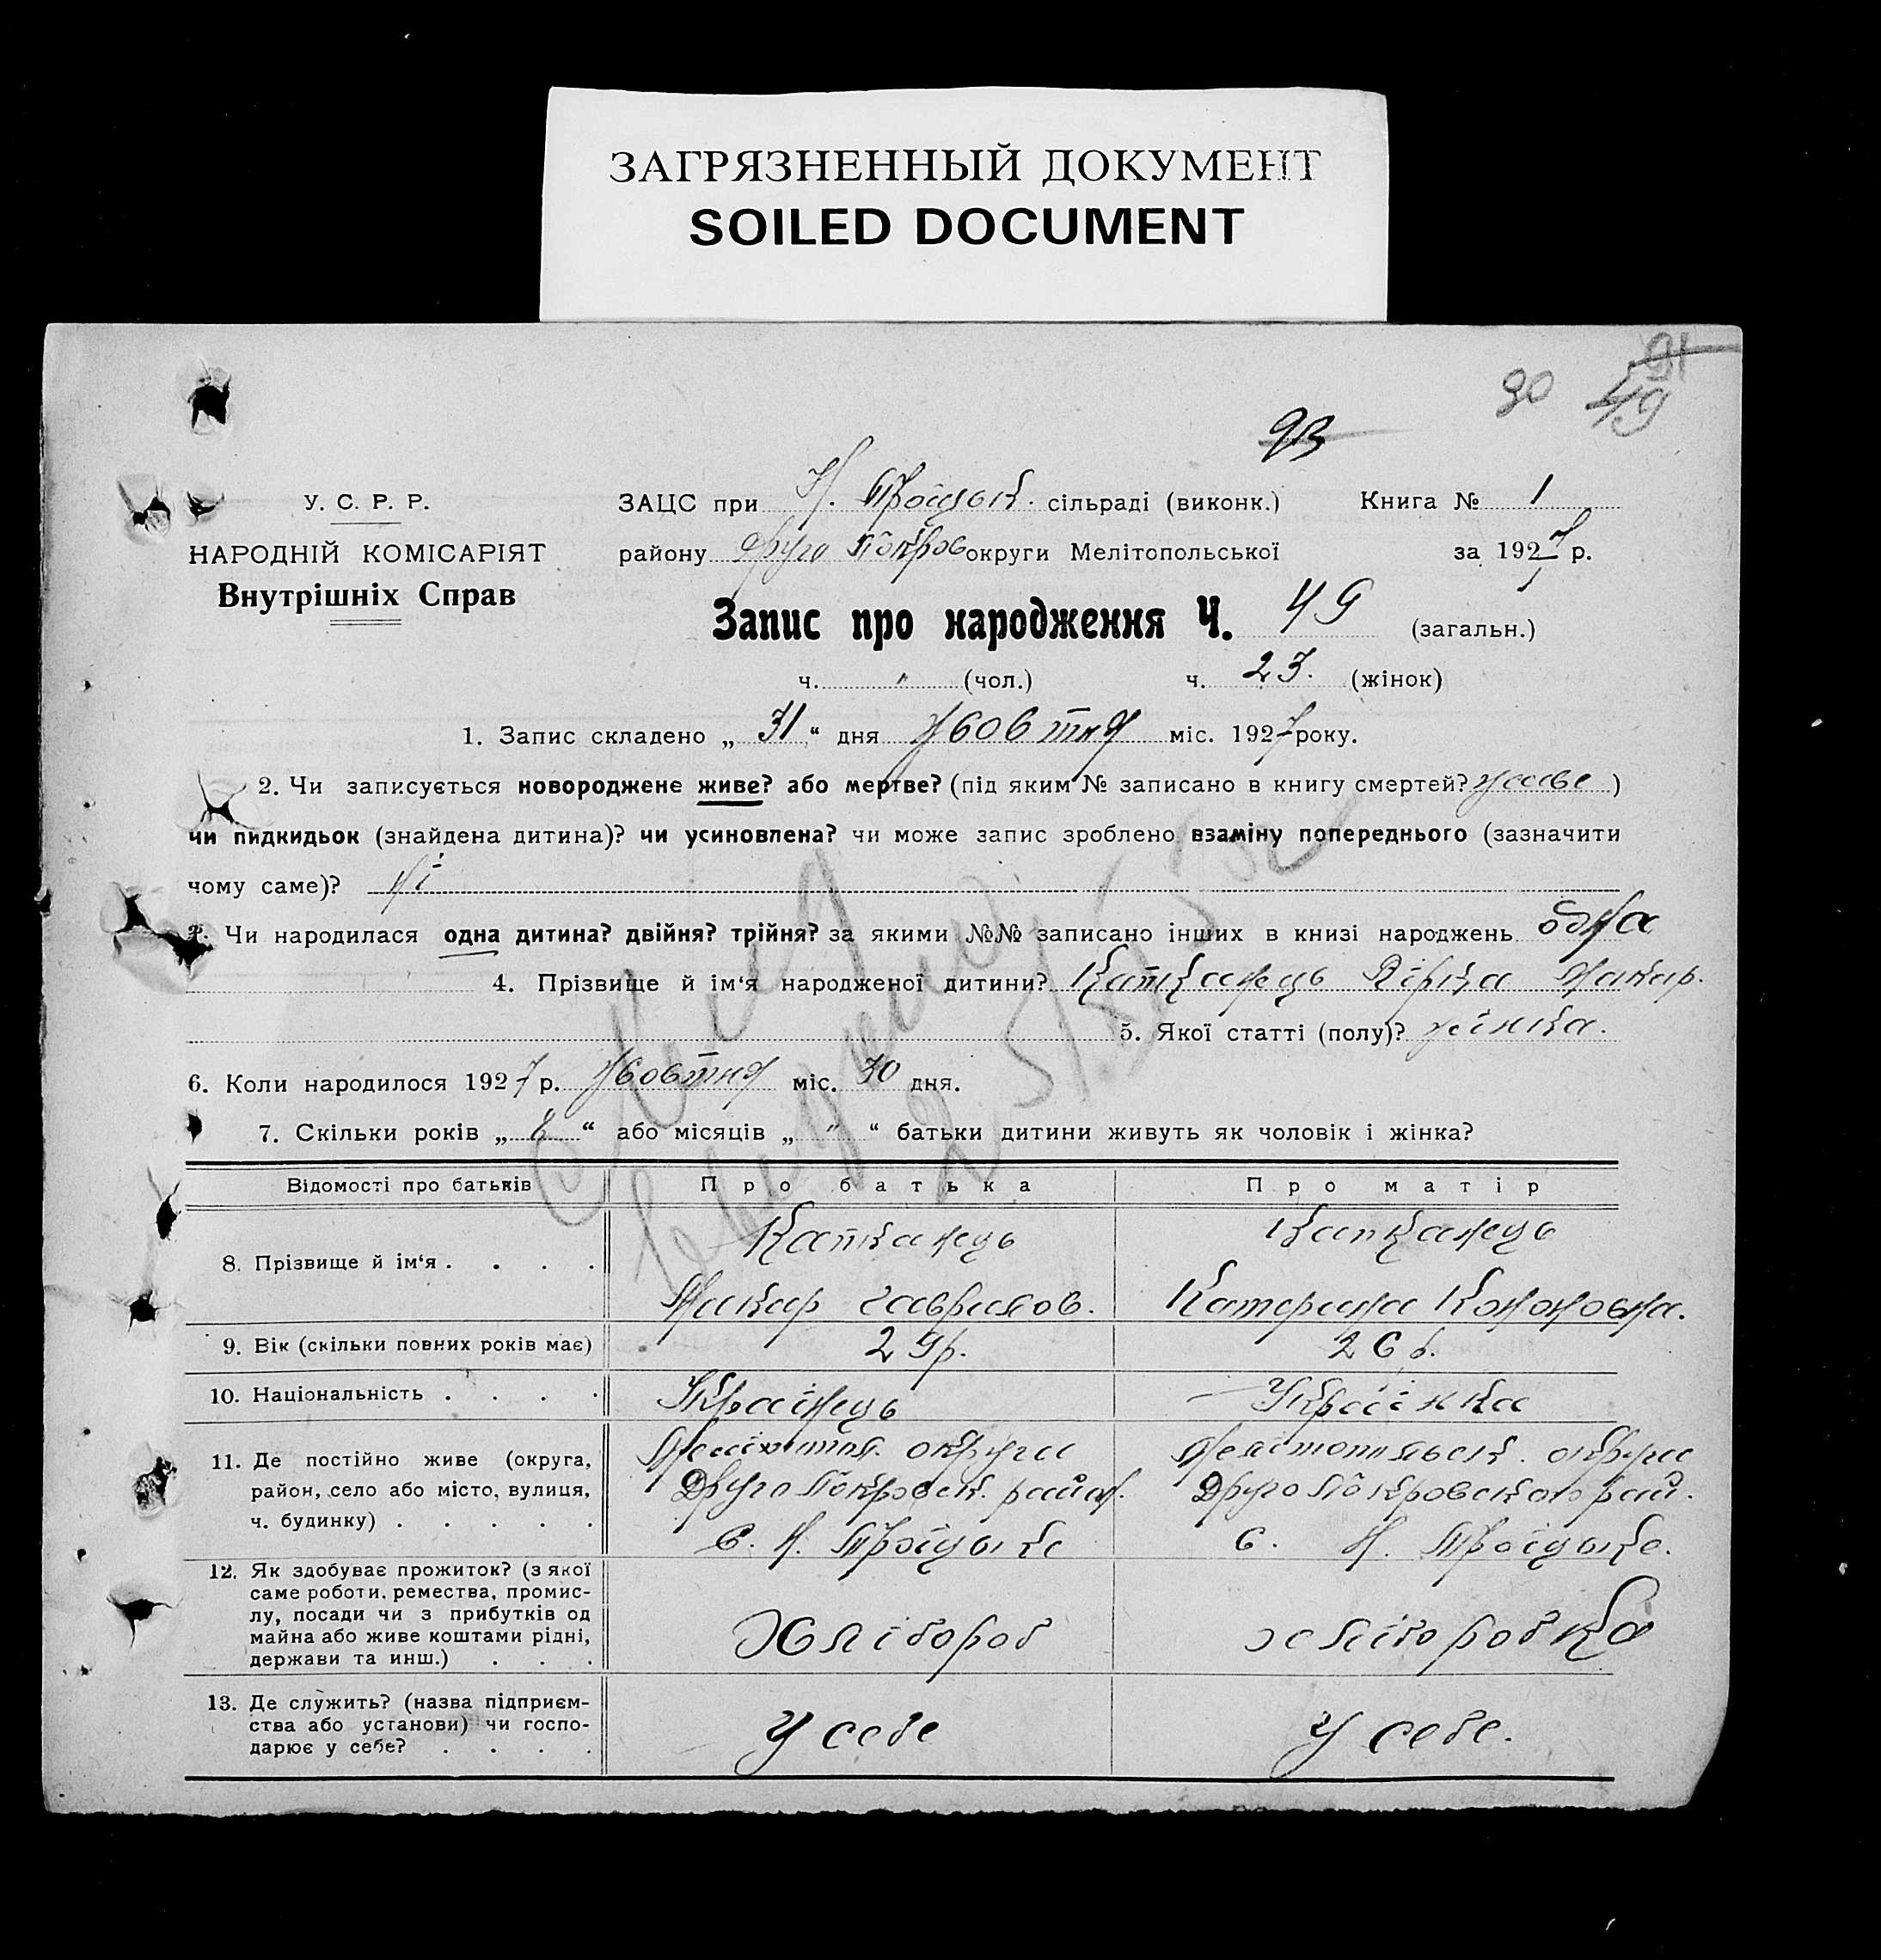 ЗАГРЯЗНЕННЫЙ ДОКУМЕНТ
SOILED DOCUMENT
90 49
93
У. С. Р. Р.
НАРОДНІЙ КОМІСАРІЯТ
Внутрішніх Справ
ЗАЦС при Н. Троїцьк. сільраді (виконк.) Книга № 1
району Друго Покров округи Мелітопольської за 1927 р.
Запис про народження Ч. 49 (загальн.)
ч. " (чол.) ч. 23. (жінок)
1. Запис складено „ 31 “ дня Жовтня міс. 1927 року.
2. Чи записується новороджене живе? або мертве? (під яким № записано в книгу смертей? живе )
чи пидкидьок (знайдена дитина)? чи усиновлена? чи може запис зроблено взаміну попереднього (зазначити
чому саме)? Ні
3. Чи народилася одна дитина? двійня? трійня? за якими №№ записано інших в книзі народжень одна
4. Прізвище й ім‘я народженої дитини? Капканець Вірка Макар.
5. Якої статті (полу)? жінка.
6. Коли народилося 1927 р. Жовтня міс. 30 дня.
7. Скільки років „ 8 “ або місяців „ " “ батьки дитини живуть як чоловік і жінка?
Відомості про батьків Про батька Про матір
8. Прізвище й ім‘я . . . . Капканець Капканець
Макар Гаврилов. Катерина Кононовна.
9. Вік (скільки повних років має) 29 р. 26 р.
10. Національність . . . . Українець Українка
11. Де постійно живе (округа, район, село або місто, вулиця, ч. будинку) . . . . .
Меліт. округи Мелітопольськ. округи
Друго Покровськ. район. Друго Покровского рай.
С. Н. Троїцьке С. Н. Троїцьке.
12. Як здобуває прожиток? (з якої
саме роботи, ремества, промис-
лу, посади чи з прибутків од
майна або живе коштами рідні,
держави та инш.) . . .
Хлібороб хліборобка
13. Де служить? (назва підприєм-
ства або установи) чи госпо-
дарює у себе? . . . .
У себе У себе.